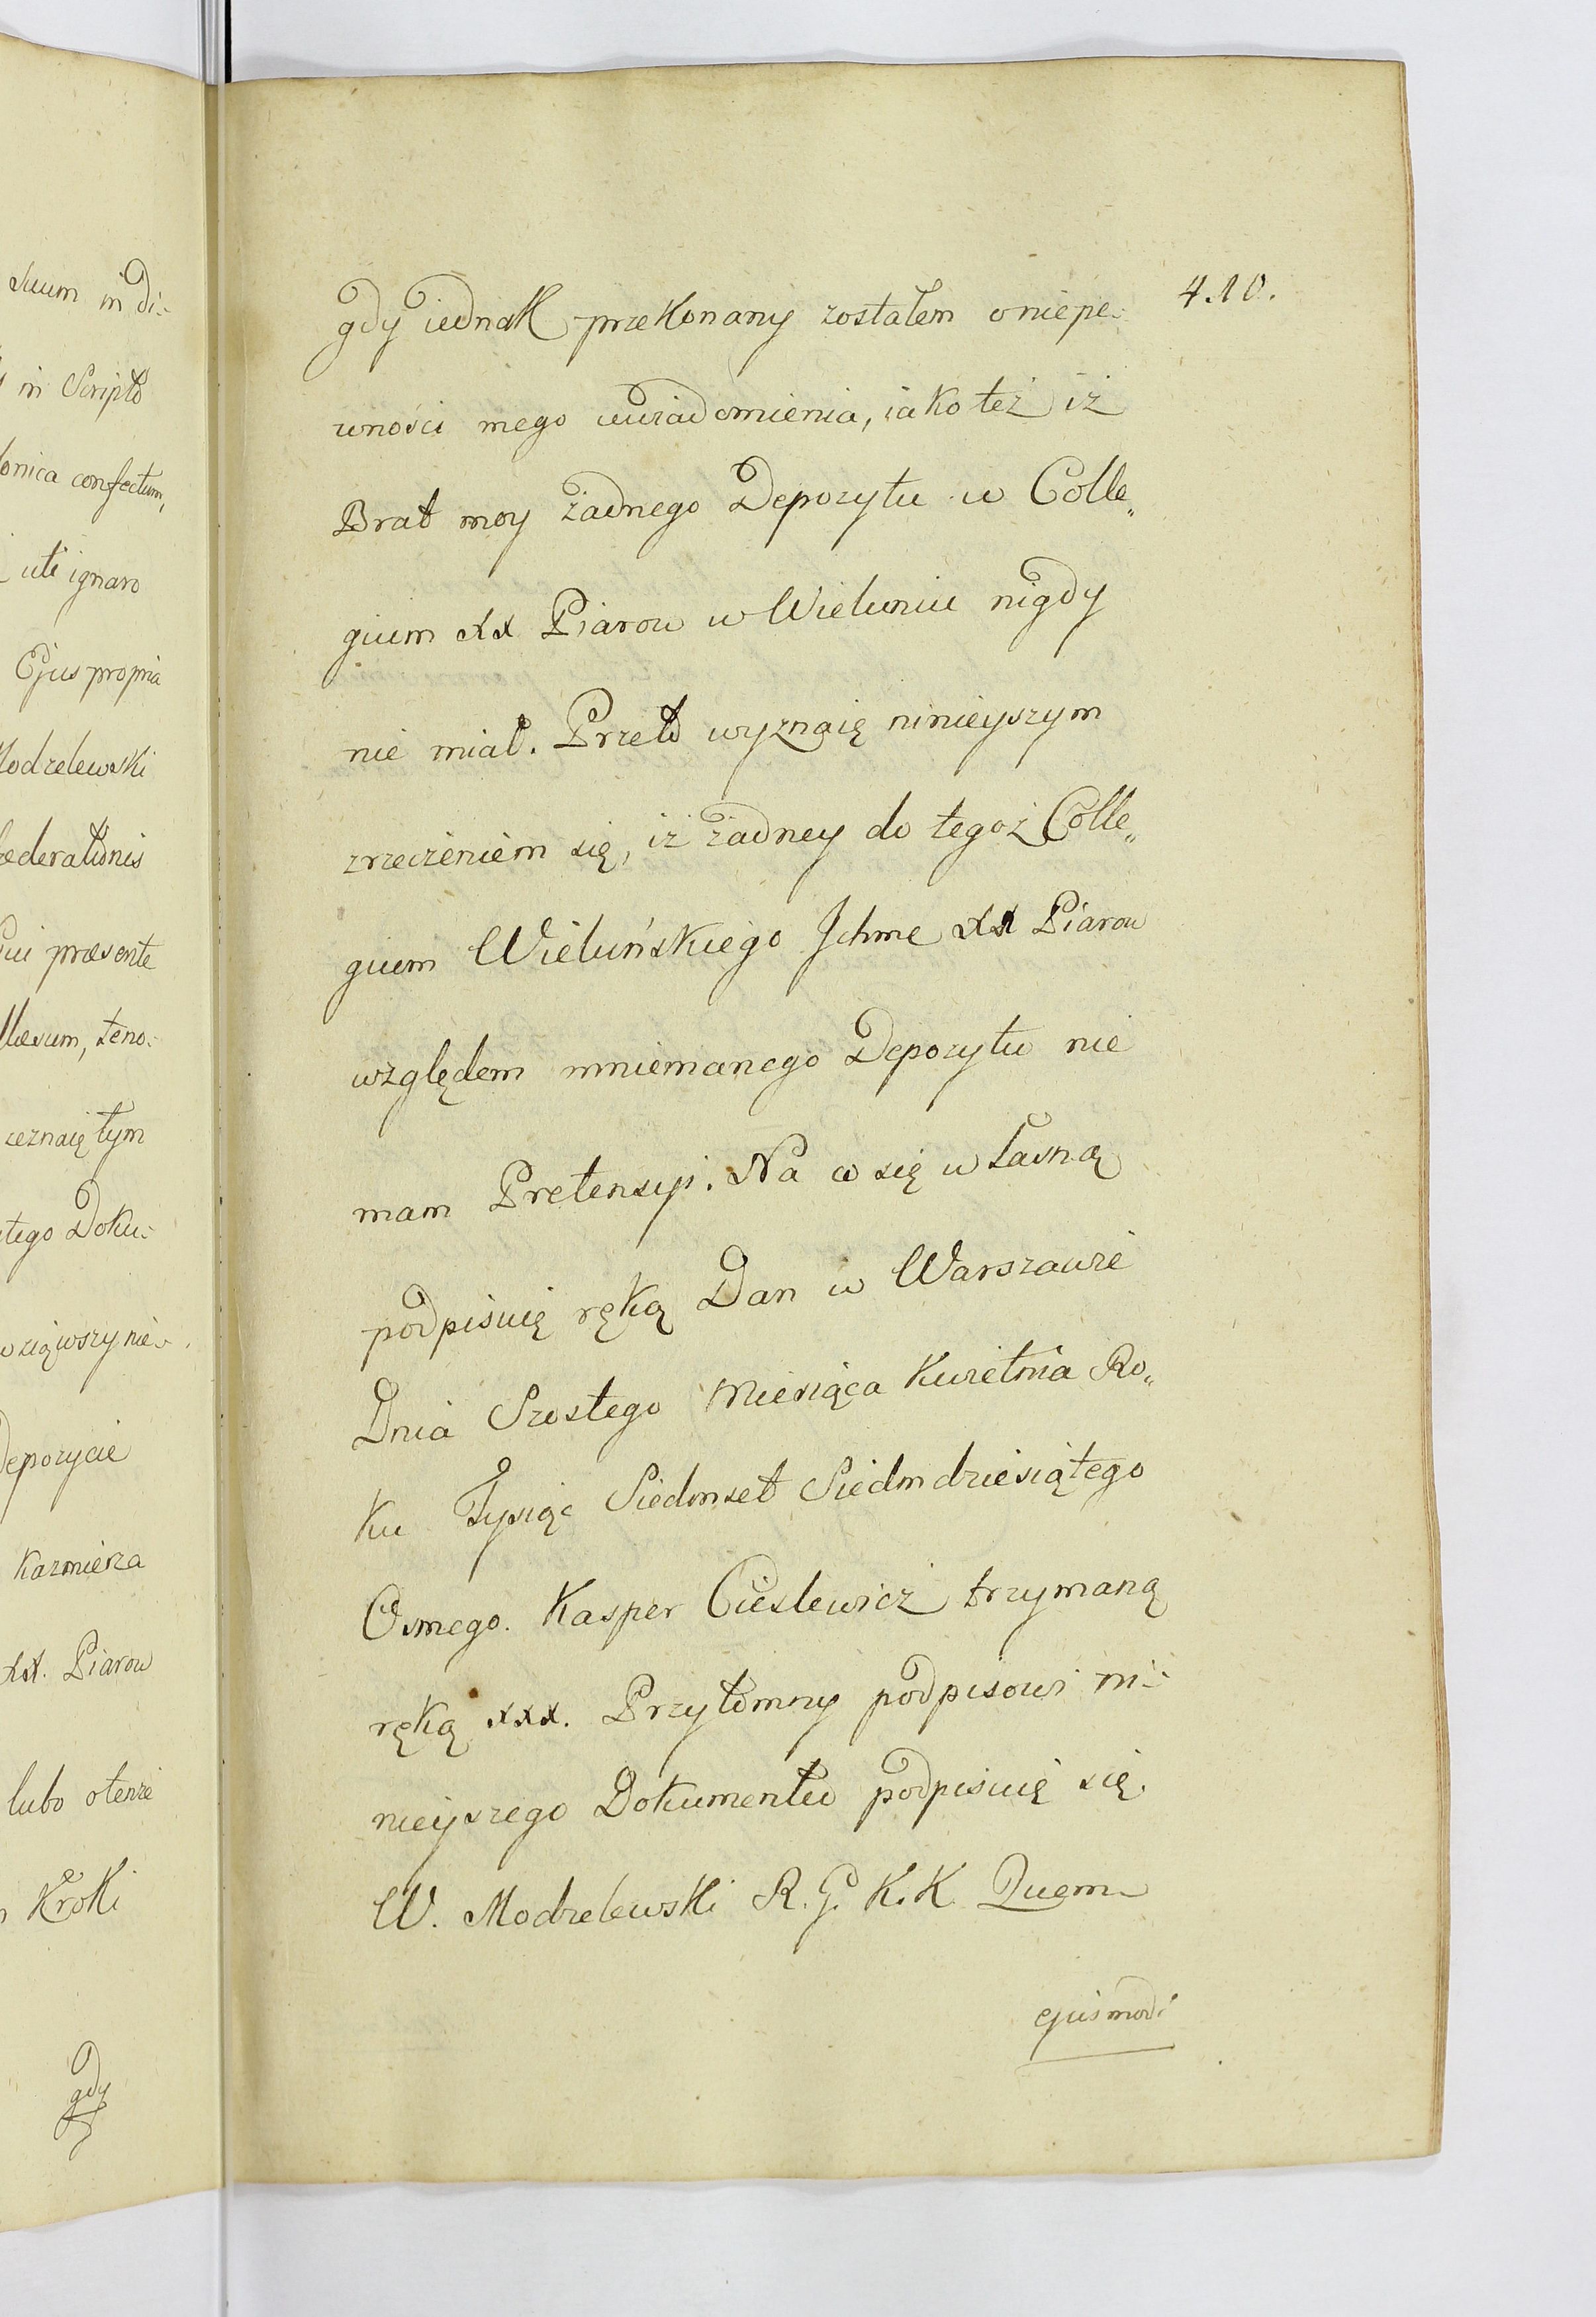 suum in di-
in Scripto
onica confectum,
uti ignaro
Ejus propria
Modzelewski
œderationis
præsente
llæsum, teno-
zeznaię tym
tego Doku-
wziąwszy nie-
Depozycie
Kazmierza
xx. Piarow
lubo otenze
Kroki
gdy
4.10.
gdy iednak przekonany zostałem o niepe-
wności mego uwiadomienia, iako też iż
Brat moy żadnego Depozytu w Colle„
gium xx Piarow w Wieluniu nigdy
nie miał. Przeto wyznaię ninieyszym
zrzeczeniem się, iż żadney do tegoż Colle„
gium Wieluńskiego Jchmc xx Piarow
względem mniemanego Depozytu nie
mam Pretensyi. Na co się własną
podpisuię ręką Dan w Warszawie
Dnia Szostego Miesiąca Kwietnia Ro„
ku Tysiąc Siedmset Siedmdziesiątego
Osmego. Kasper Cieslewicz trzymaną
ręką xxx. Przytomny podpisowi ni-
nieyszego Dokumentu podpisuię się
W. Modzelewski R. G. K. K. Quem
ejusmodi